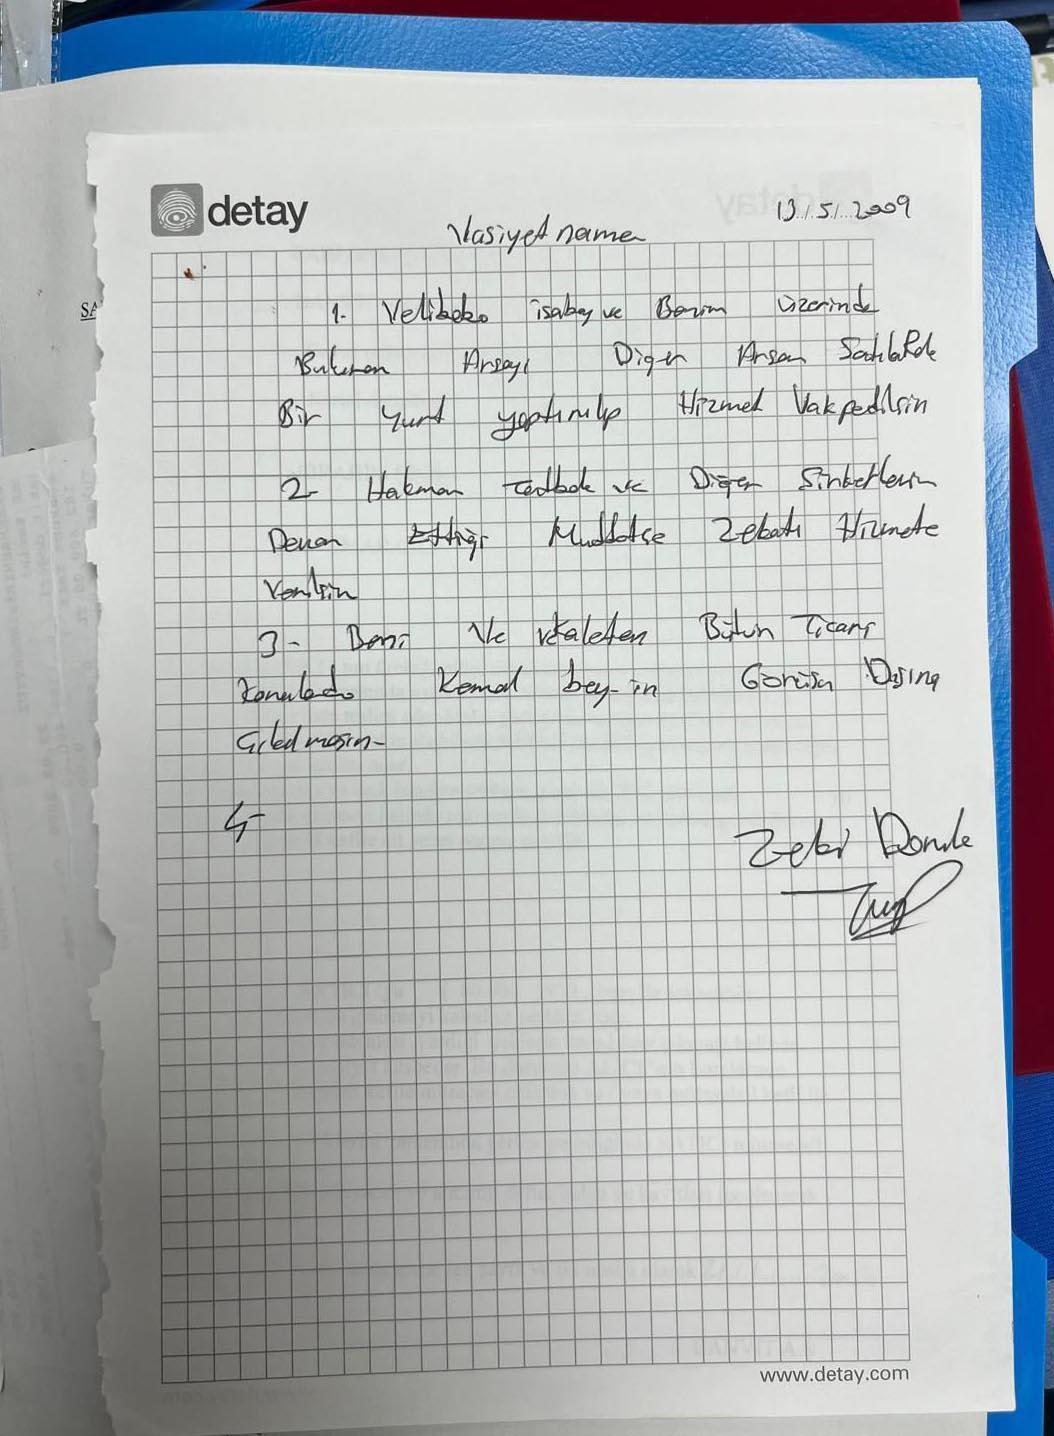 detay
13/5/2009
Vasiyet name
1- Velibaba isabey ve Benim üzerinde
Bulunan Arsayı Diğer Arsam Satılarak
Bir Yurt yaptırılıp Hizmet Vakfedilsin
2- Hakman ve Diğer Şirketlerin
Devam Ettiği Müddetçe Zekatı Hizmete
Verilsin
3- Beni Ve vekaleten Bütün Ticari
Konularda Kemal bey-in Görüşü Dışına
Çıkılmasın-
4-
Zeki
www.detay.com